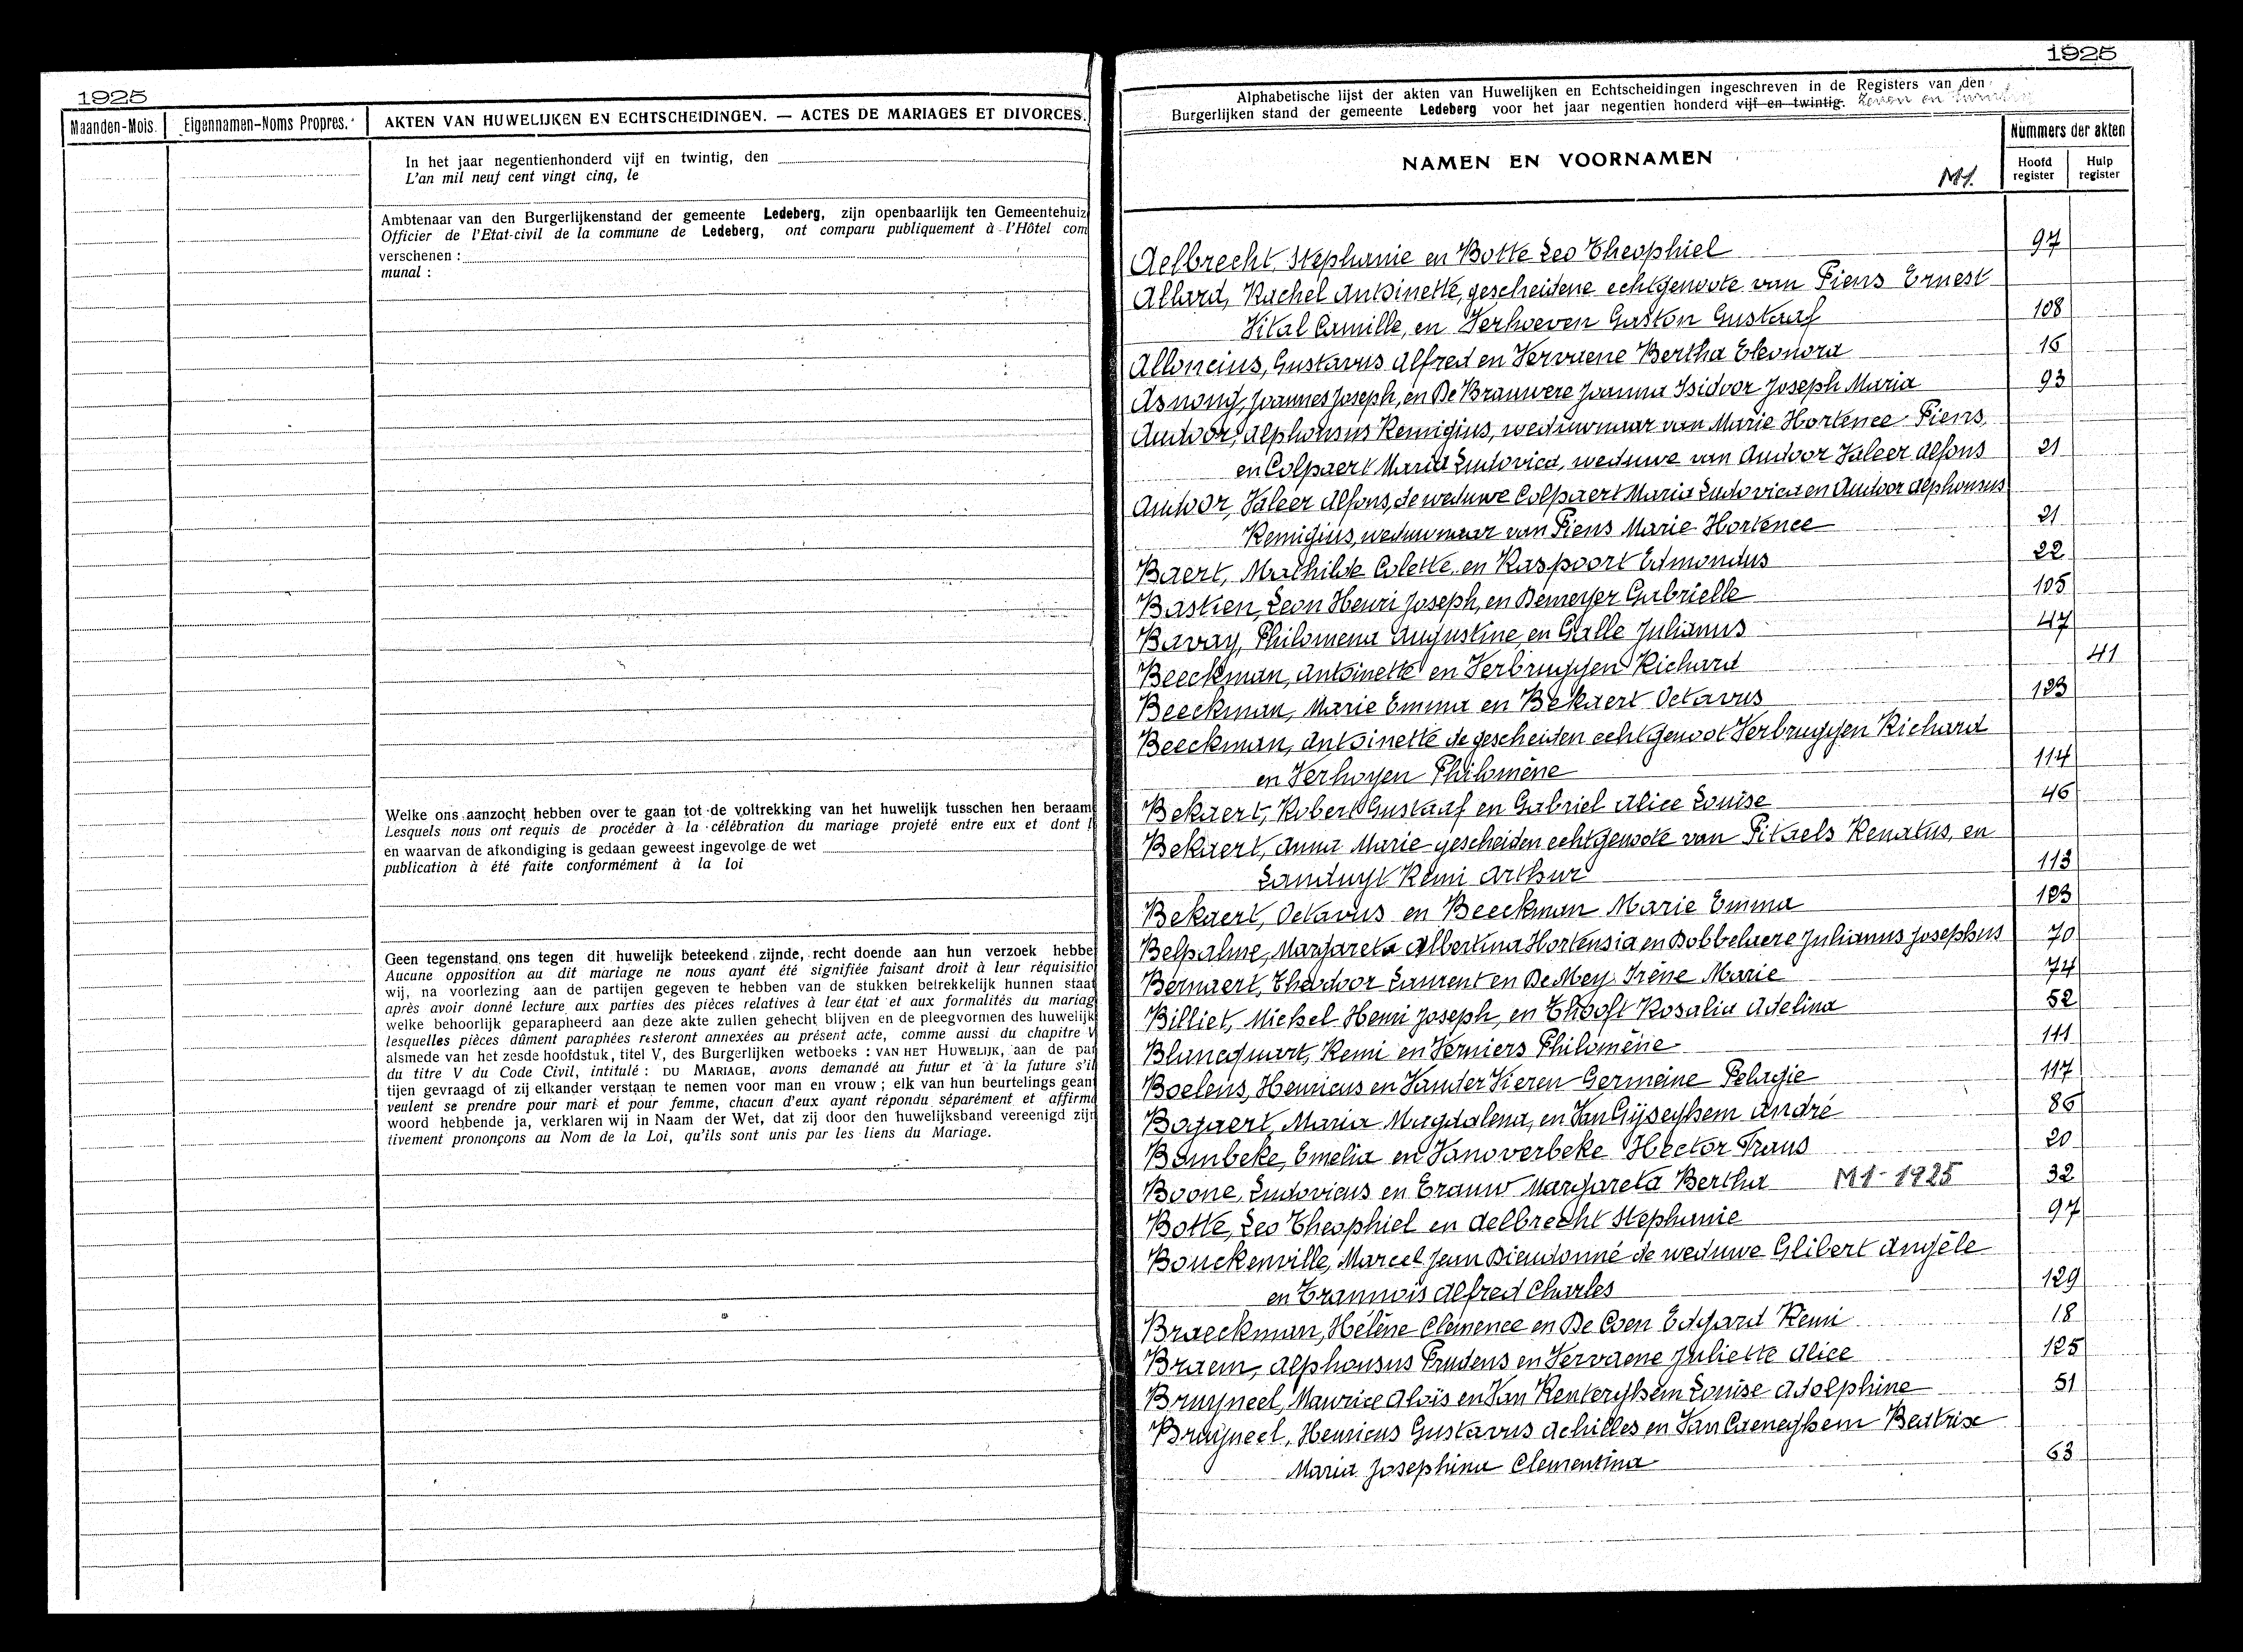 1925
Maanden-Mois.
Eigennamen-Noms Propres.
AKTEN VAN HUWELIJKEN EN ECHTSCHEIDINGEN. — ACTES DE MARIAGES ET DIVORCES.
In het jaar negentienhonderd vijf en twintig, den
L'an mil neuf cent vingt cinq, le
Ambtenaar van den Burgerlijkenstand der gemeente Ledeberg, zijn openbaarlijk ten Gemeentehuiz
Officier de l'Etat-civil de la commune de Ledeberg, ont comparu publiquement à l'Hôtel com
verschenen :
munal :
Welke ons aanzocht hebben over te gaan tot de voltrekking van het huwelijk tusschen hen beraam
Lesquels nous ont requis de procéder à la célébration du mariage projeté entre eux et dont l
en waarvan de afkondiging is gedaan geweest ingevolge de wet
publication à été faite conformément à la loi
Geen tegenstand ons tegen dit huwelijk beteekend zijnde, recht doende aan hun verzoek hebbe
Aucune opposition au dit mariage ne nous ayant été signifiée faisant droit à leur réquisitio
wij, na voorlezing aan de partijen gegeven te hebben van de stukken betrekkelijk hunnen staat
après avoir donné lecture aux parties des pièces relatives à leur état et aux formalités du mariag
welke behoorlijk geparapheerd aan deze akte zullen gehecht blijven en de pleegvormen des huwelijk
lesquelles pièces dûment paraphées resteront annexées au présent acte, comme aussi du chapitre V
alsmede van het zesde hoofdstuk, titel V, des Burgerlijken wetboeks : VAN HET HUWELIJK, aan de par
du titre V du Code Civil, intitulé : DU MARIAGE, avons demandé au futur et à la future s'il
tijen gevraagd of zij elkander verstaan te nemen voor man en vrouw ; elk van hun beurtelings geant
veulent se prendre pour mari et pour femme, chacun d'eux ayant répondu séparément et affirma
woord hebbende ja, verklaren wij in Naam der Wet, dat zij door den huwelijksband vereenigd zijn
tivement prononçons au Nom de la Loi, qu'ils sont unis par les liens du Mariage.
1925
Alphabetische lijst der akten van Huwelijken en Echtscheidingen ingeschreven in de Registers van den
Burgerlijken stand der gemeente Ledeberg voor het jaar negentien honderd vijf en twintig. Zeven en twintig
NAMEN EN VOORNAMEN
M1.
Nummers der akten
Hoofd register
Hulp register
Aelbrecht, Stephanie en Botte Leo Theophiel 97
Allard, Rachel Antoinette, gescheidene echtgenoote van Piens Ernest
Vital Camille, en Verhoeven Gaston Gustaaf 108
Alloncius, Gustavus Alfred en Vervaene Bertha Eleonora 16
Asnong, Joannes Joseph, en De Brauwere Joanna Isidoor Joseph Maria 93
Audoor, Alphonsus Remigius, weduwnaar van Marie Hortence Piens,
en Colpaert Maria Ludovica, weduwe van Audoor Valeer Alfons 21
Audoor, Valeer Alfons, de weduwe Colpaert Maria Ludovica en Audoor Alphonsus
Remigius, weduwnaar van Piens Marie Hortence 21
Baert, Mathilde Colette, en Raspoort Edmondus 22
Bastien, Leon Henri Joseph, en Demeyer Gabrielle 105
Bavay, Philomena Augustine, en Galle Julianus 47
Beeckman, Antoinette en Verbruggen Richard 41
Beeckman, Marie Emma en Bekaert Octavus 123
Beeckman, Antoinette de gescheiden echtgenoot Verbruggen Richard
en Verhoyen Philomène 114
Bekaert, Robert Gustaaf en Gabriel Alice Louise 46
Bekaert, Anna Marie gescheiden echtgenoote van Pitaels Renatus, en
Landuyt Remi Arthur 113
Bekaert, Octavus en Beeckman Marie Emma 123
Belpalme, Margareta Albertina Hortensia en Dobbelaere Julianus Josephus 70
Bernaert, Theodoor Laurent en De Mey Irène Marie 74
Billiet, Michel Henri Joseph, en Thooft Rosalia Adelina 52
Blancquart, Remi en Verniers Philomène 111
Boelens, Henricus en Vander Vieren Germeine Pelagie 117
Bogaert, Maria Magdalena, en Van Gijseghem André 86
Bombeke, Emelia en Vanoverbeke Hector Frans 20
Boone, Ludovicus en Trauw Margareta Bertha M1-1925 32
Botte, Leo Theophiel en Aelbrecht Stephanie 97
Bouckenville, Marcel Jean Dieudonné de weduwe Glibert Angèle
en Trannois Alfred Charles 129
Braeckman, Hélène Clémence en De Coen Edgard Remi 18
Braem, Alphonsus Prudens en Vervaene Juliette Alice 125
Bruyneel, Maurice Aloïs en Van Renterghem Louise Adolphine 51
Bruyneel, Henricus Gustavus Achilles en Van Caeneghem Beatrix
Maria Josephina Clementina 63